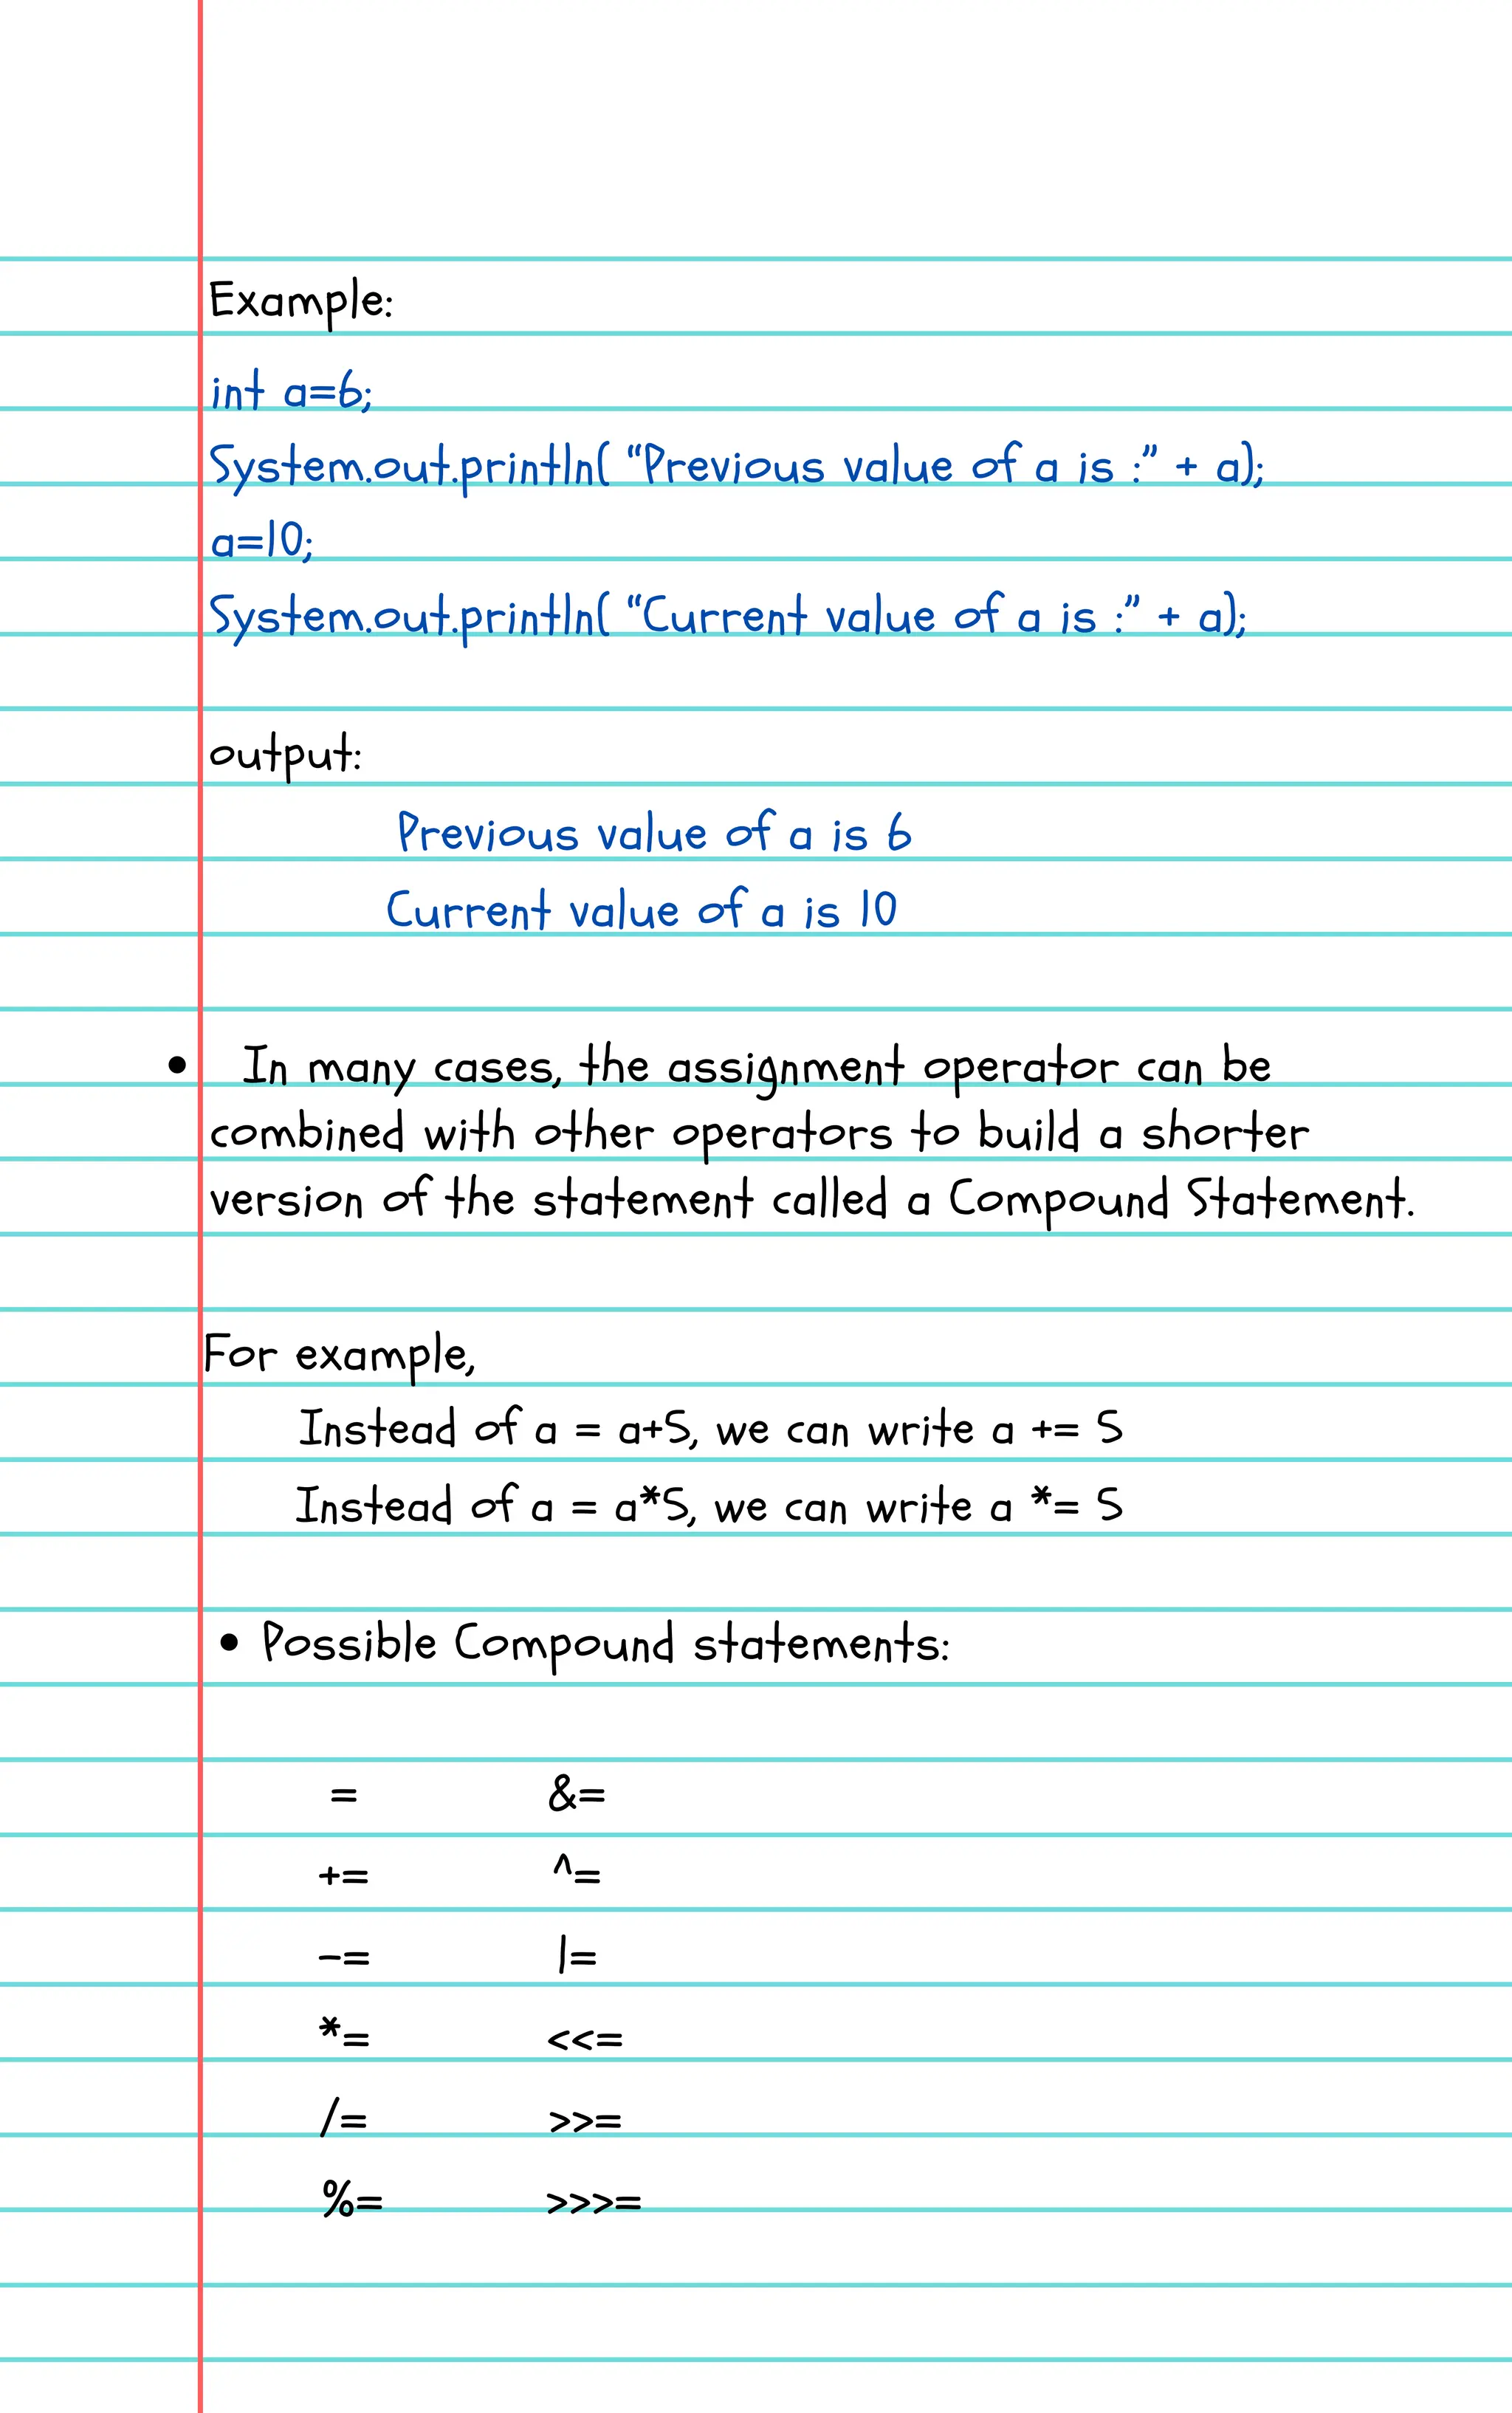 Example:
int a=6;
System.out.println( “Previous value of a is :” + a);
a=10;
System.out.println( “Current value of a is :” + a);
output:
Previous value of a is 6
Current value of a is 10
• In many cases, the assignment operator can be
combined with other operators to build a shorter
version of the statement called a Compound Statement.
For example,
Instead of a = a+5, we can write a += 5
Instead of a = a*5, we can write a *= 5
• Possible Compound statements:
= &=
+= ^=
-= |=
*= <<=
/= >>=
%= >>>=